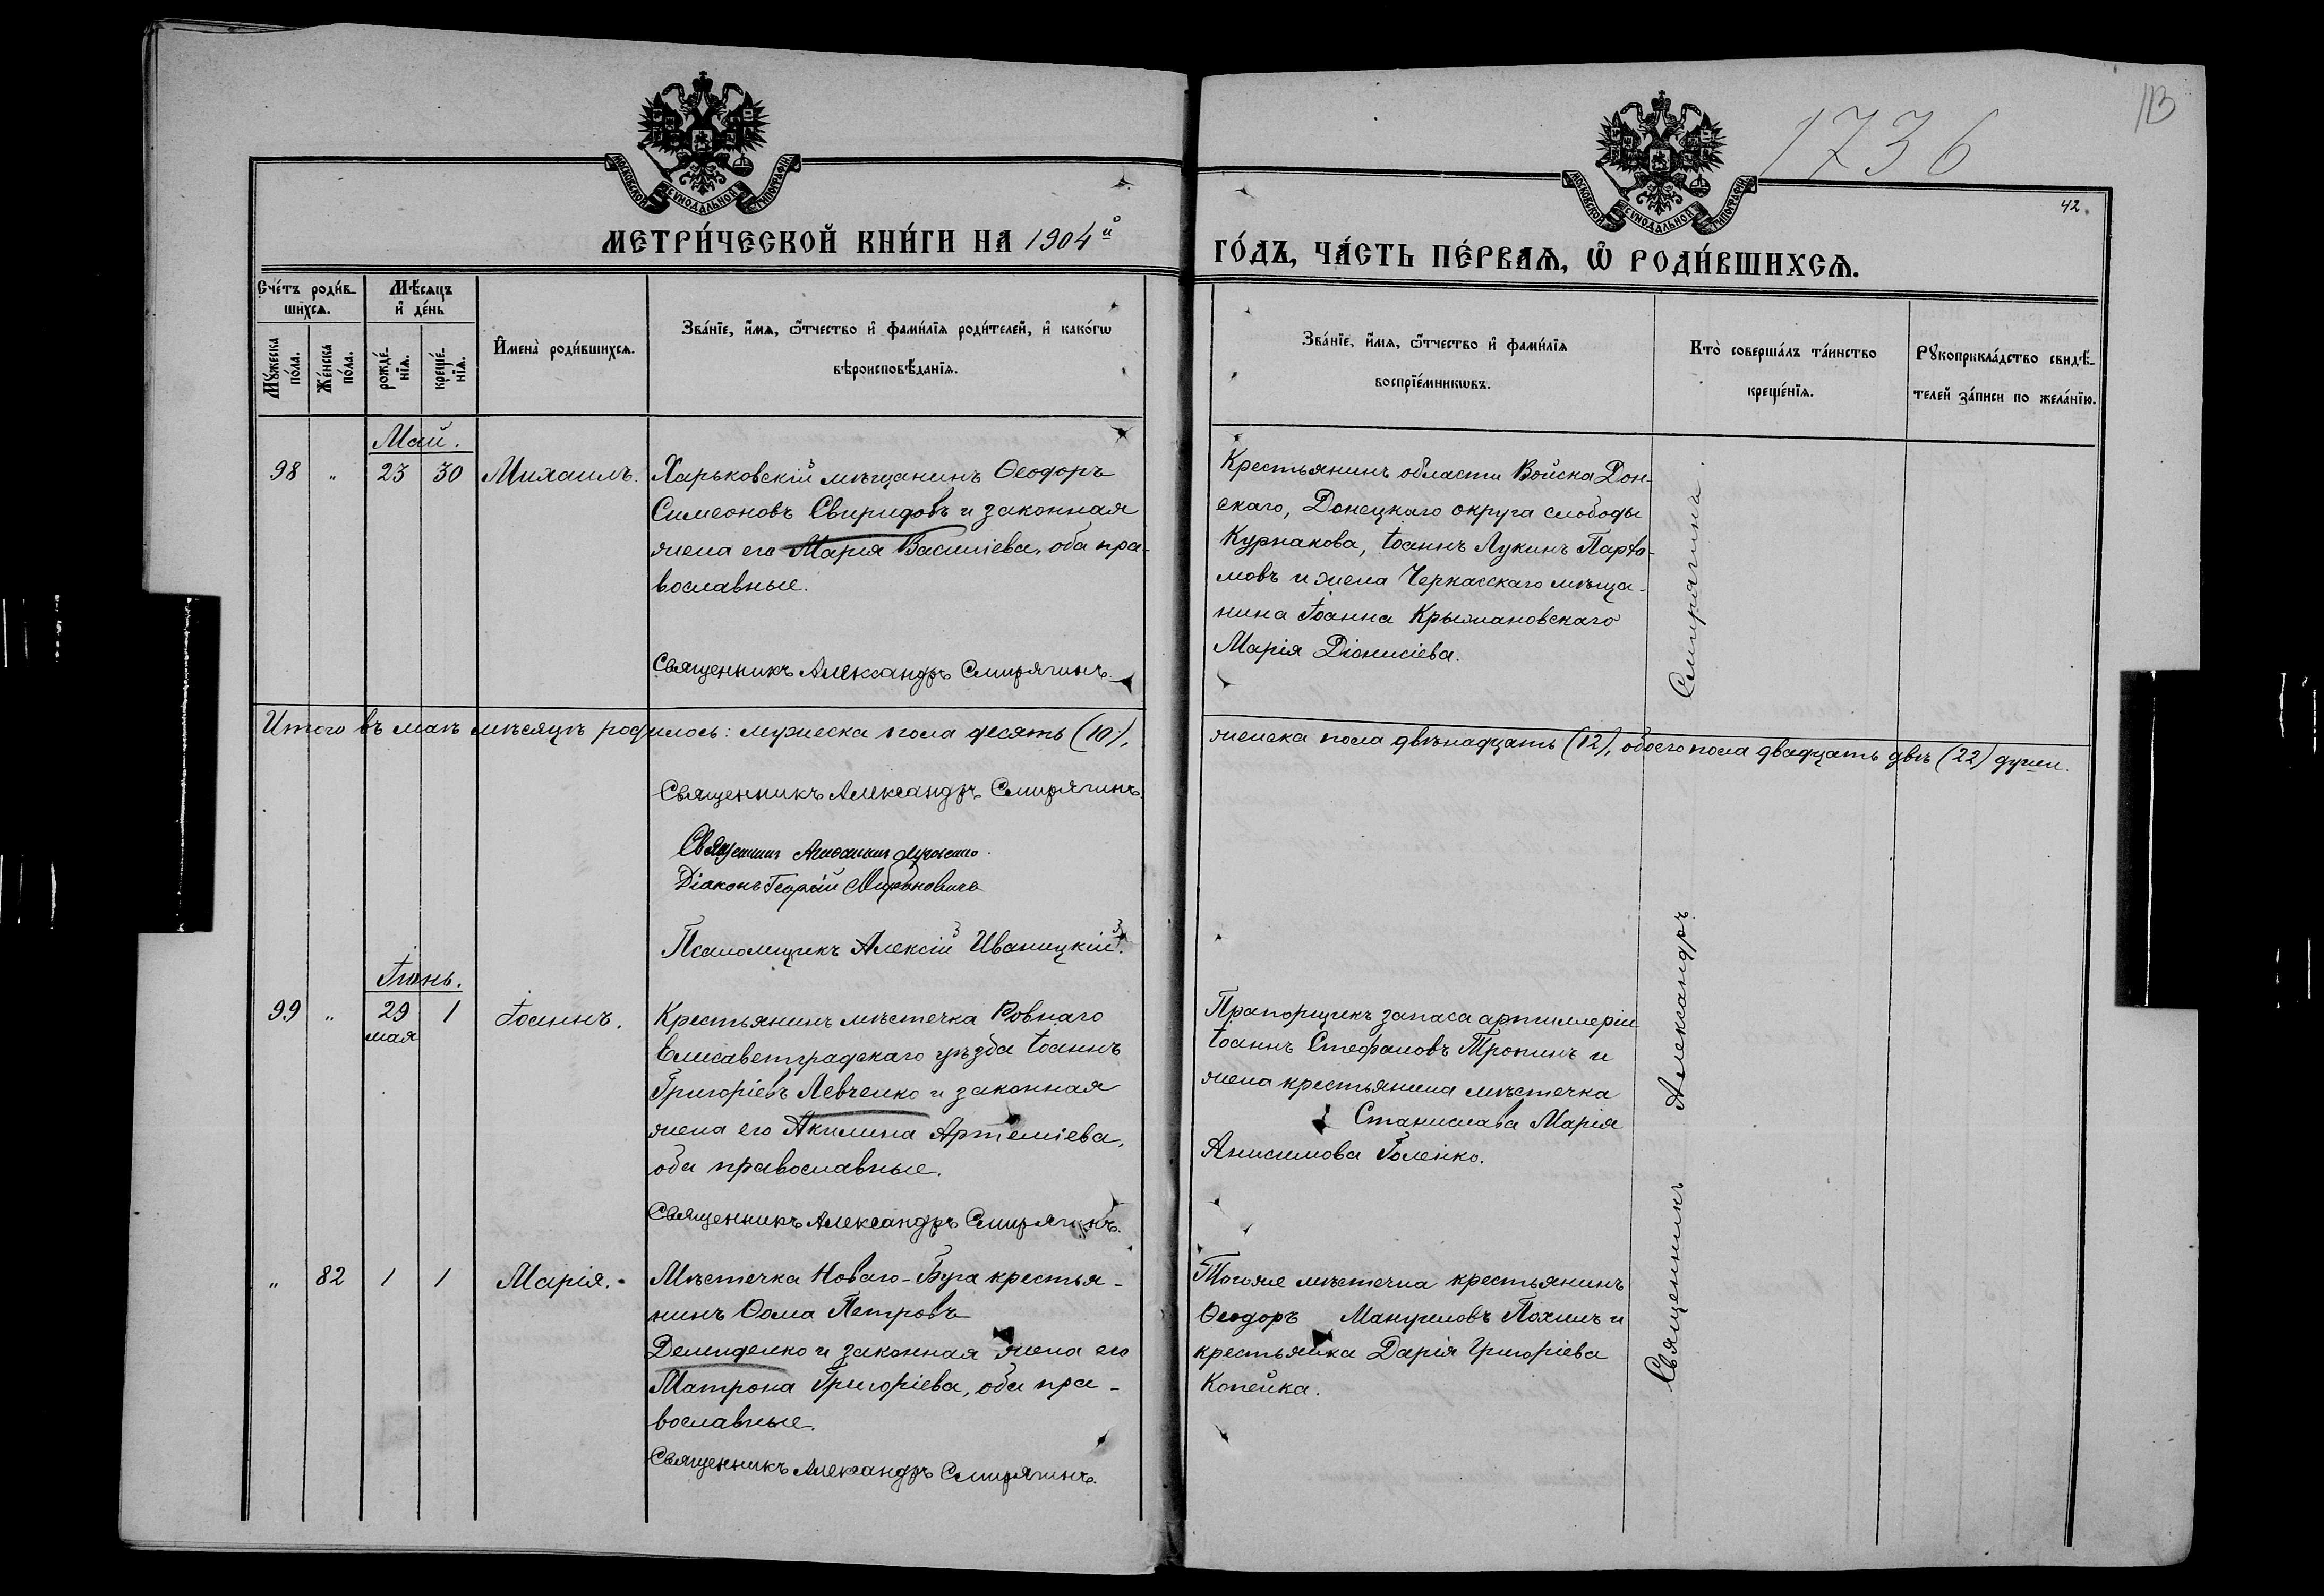 1736
113
42.
МОСКОВСКОЙ СУНОДАЛЬНОЙ ТИПОГРАФІИ
МОСКОВСКОЙ СУНОДАЛЬНОЙ ТИПОГРАФІИ
МЕТРИ́ЧЕСКОЙ КНИ́ГИ НА 1904й
ГО́ДЪ, ЧА́СТЬ ПЕ́РВАѦ, Ѡ҆ РОДИ́ВШИХСѦ.
Сче́тъ роди́в-
шихсѧ.
Мѣ́сяцъ
и҆ де́нь
Му́жеска
по́ла.
Же́нска
по́ла.
рожде́-
нїѧ.
креще́-
нїѧ.
И҆мена̀ роди́вшихсѧ.
Зва́нїе, и҆́мѧ, ѻ҆́тчество и҆ фами́лїѧ роди́телей, и҆ како́гѡ
вѣроисповѣ́данїѧ.
Зва́нїе, и҆́мѧ, ѻ҆́тчество и҆ фами́лїѧ
воспрїе́мникѡвъ.
Кто̀ соверша́лъ та́инство
креще́нїѧ.
Рꙋкоприкла́дство свидѣ́-
телей за́писи по жела́нїю.
Май.
98 " 23 30 Михаилъ.
Харьковскій мѣщанинъ Ѳеодоръ
Симеоновъ Свиридовъ и законная
жена его Марія Василіева, оба пра-
вославные.
Священникъ Александръ Смирягинъ.
Крестьянинъ области Войска Дон-
скаго, Донецкаго округа слободы
Курнакова, Іоаннъ Лукинъ Парѳо-
мовъ и жена Черкасскаго мѣща-
нина Іоанна Крыжановскаго
Марія Діонисіева.
Итого въ маѣ мѣсяцѣ родилось: мужеска пола десять (10),
женска пола двѣнадцать (12), обоего пола двадцать двѣ (22) души.
Священникъ Александръ Смирягинъ.
Священникъ
Діаконъ Георгій
Псаломщикъ Алексій Иваницкій.
Іюнь.
99 " 29 1 Іоаннъ.
мая
Крестьянинъ мѣстечка Ровнаго
Елисаветградскаго уѣзда Іоаннъ
Григоріевъ Левченко и законная
жена его Акилина Артеміева,
оба православные.
Священникъ Александръ Смирягинъ.
Прапорщикъ запаса артиллеріи
Іоаннъ Стефановъ Тропинъ и
жена крестьянина мѣстечка
Станислава Марія
Анисимова Голенко.
" 82 1 1 Марія.
Мѣстечка Новаго-Буга крестья-
нинъ Ѳома Петровъ
Демиденко и законная жена его
Матрона Григоріева, оба пра-
вославные.
Священникъ Александръ Смирягинъ.
Того же мѣстечка крестьянинъ
Ѳеодоръ Мануиловъ Похилъ и
крестьянка Дарія Григоріева
Копейка.
Священникъ Александръ Смирягинъ.